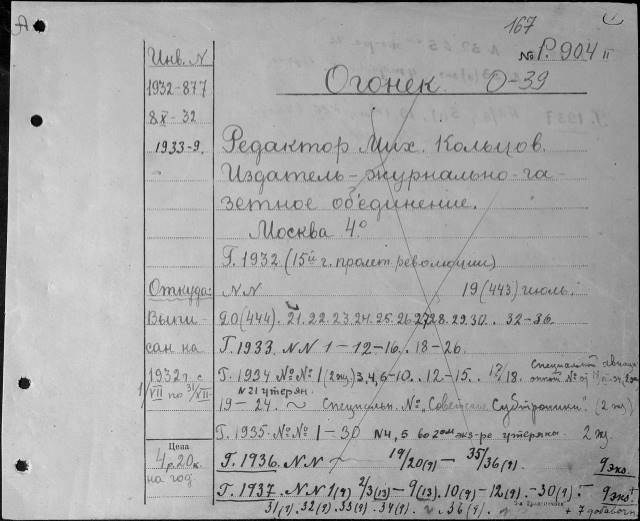 А 167 1
№ Р.904 II
Инв. N Огонек. О-39
1932-877
8 X - 32
1933-9. Редактор Мих. Кольцов.
Издатель - журнально-га-
зетное объединение.
Москва 4°
Г. 1932 (15й г. пролет. революции)
Откуда: N.N 19 (443) июль.
Выпи- 20 (444). 21. 22. 23. 24. 25. 26. 27. 28. 29. 30. . 32-36.
сан на Г. 1933. N N 1-12-16. . 18-26.
1932 г. с Г. 1934 №№ 1 (2 экз) 3, 4, 6-10. . 12-15. . 17/18. Специальный
1/VII по 31/VII- N 21 утерян.
19-24. Специальн. №, Советские Субтропики". (2 экз)
Г. 1935. №№ 1-30 N 4, 5 во 2ом экз-ре утеряны. 2 экз.
Цена
4 р. 20 к. Г. 1936. N N 19/20 (9) - 35/36 (9). 9 экз.
на год. Г. 1937. N N 1 (9) 2/3 (13) - 9 (13). 10 (9) - 12 (9). - 30 (9). - 9 экз +
31 (9). 32 (9). 33 (9). 34 (9). 36 (9). + 7 добавочн